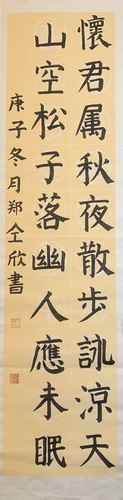 懷君属秋夜散步詠涼天
山空松子落幽人應未眠
庚子冬月郑全欣書